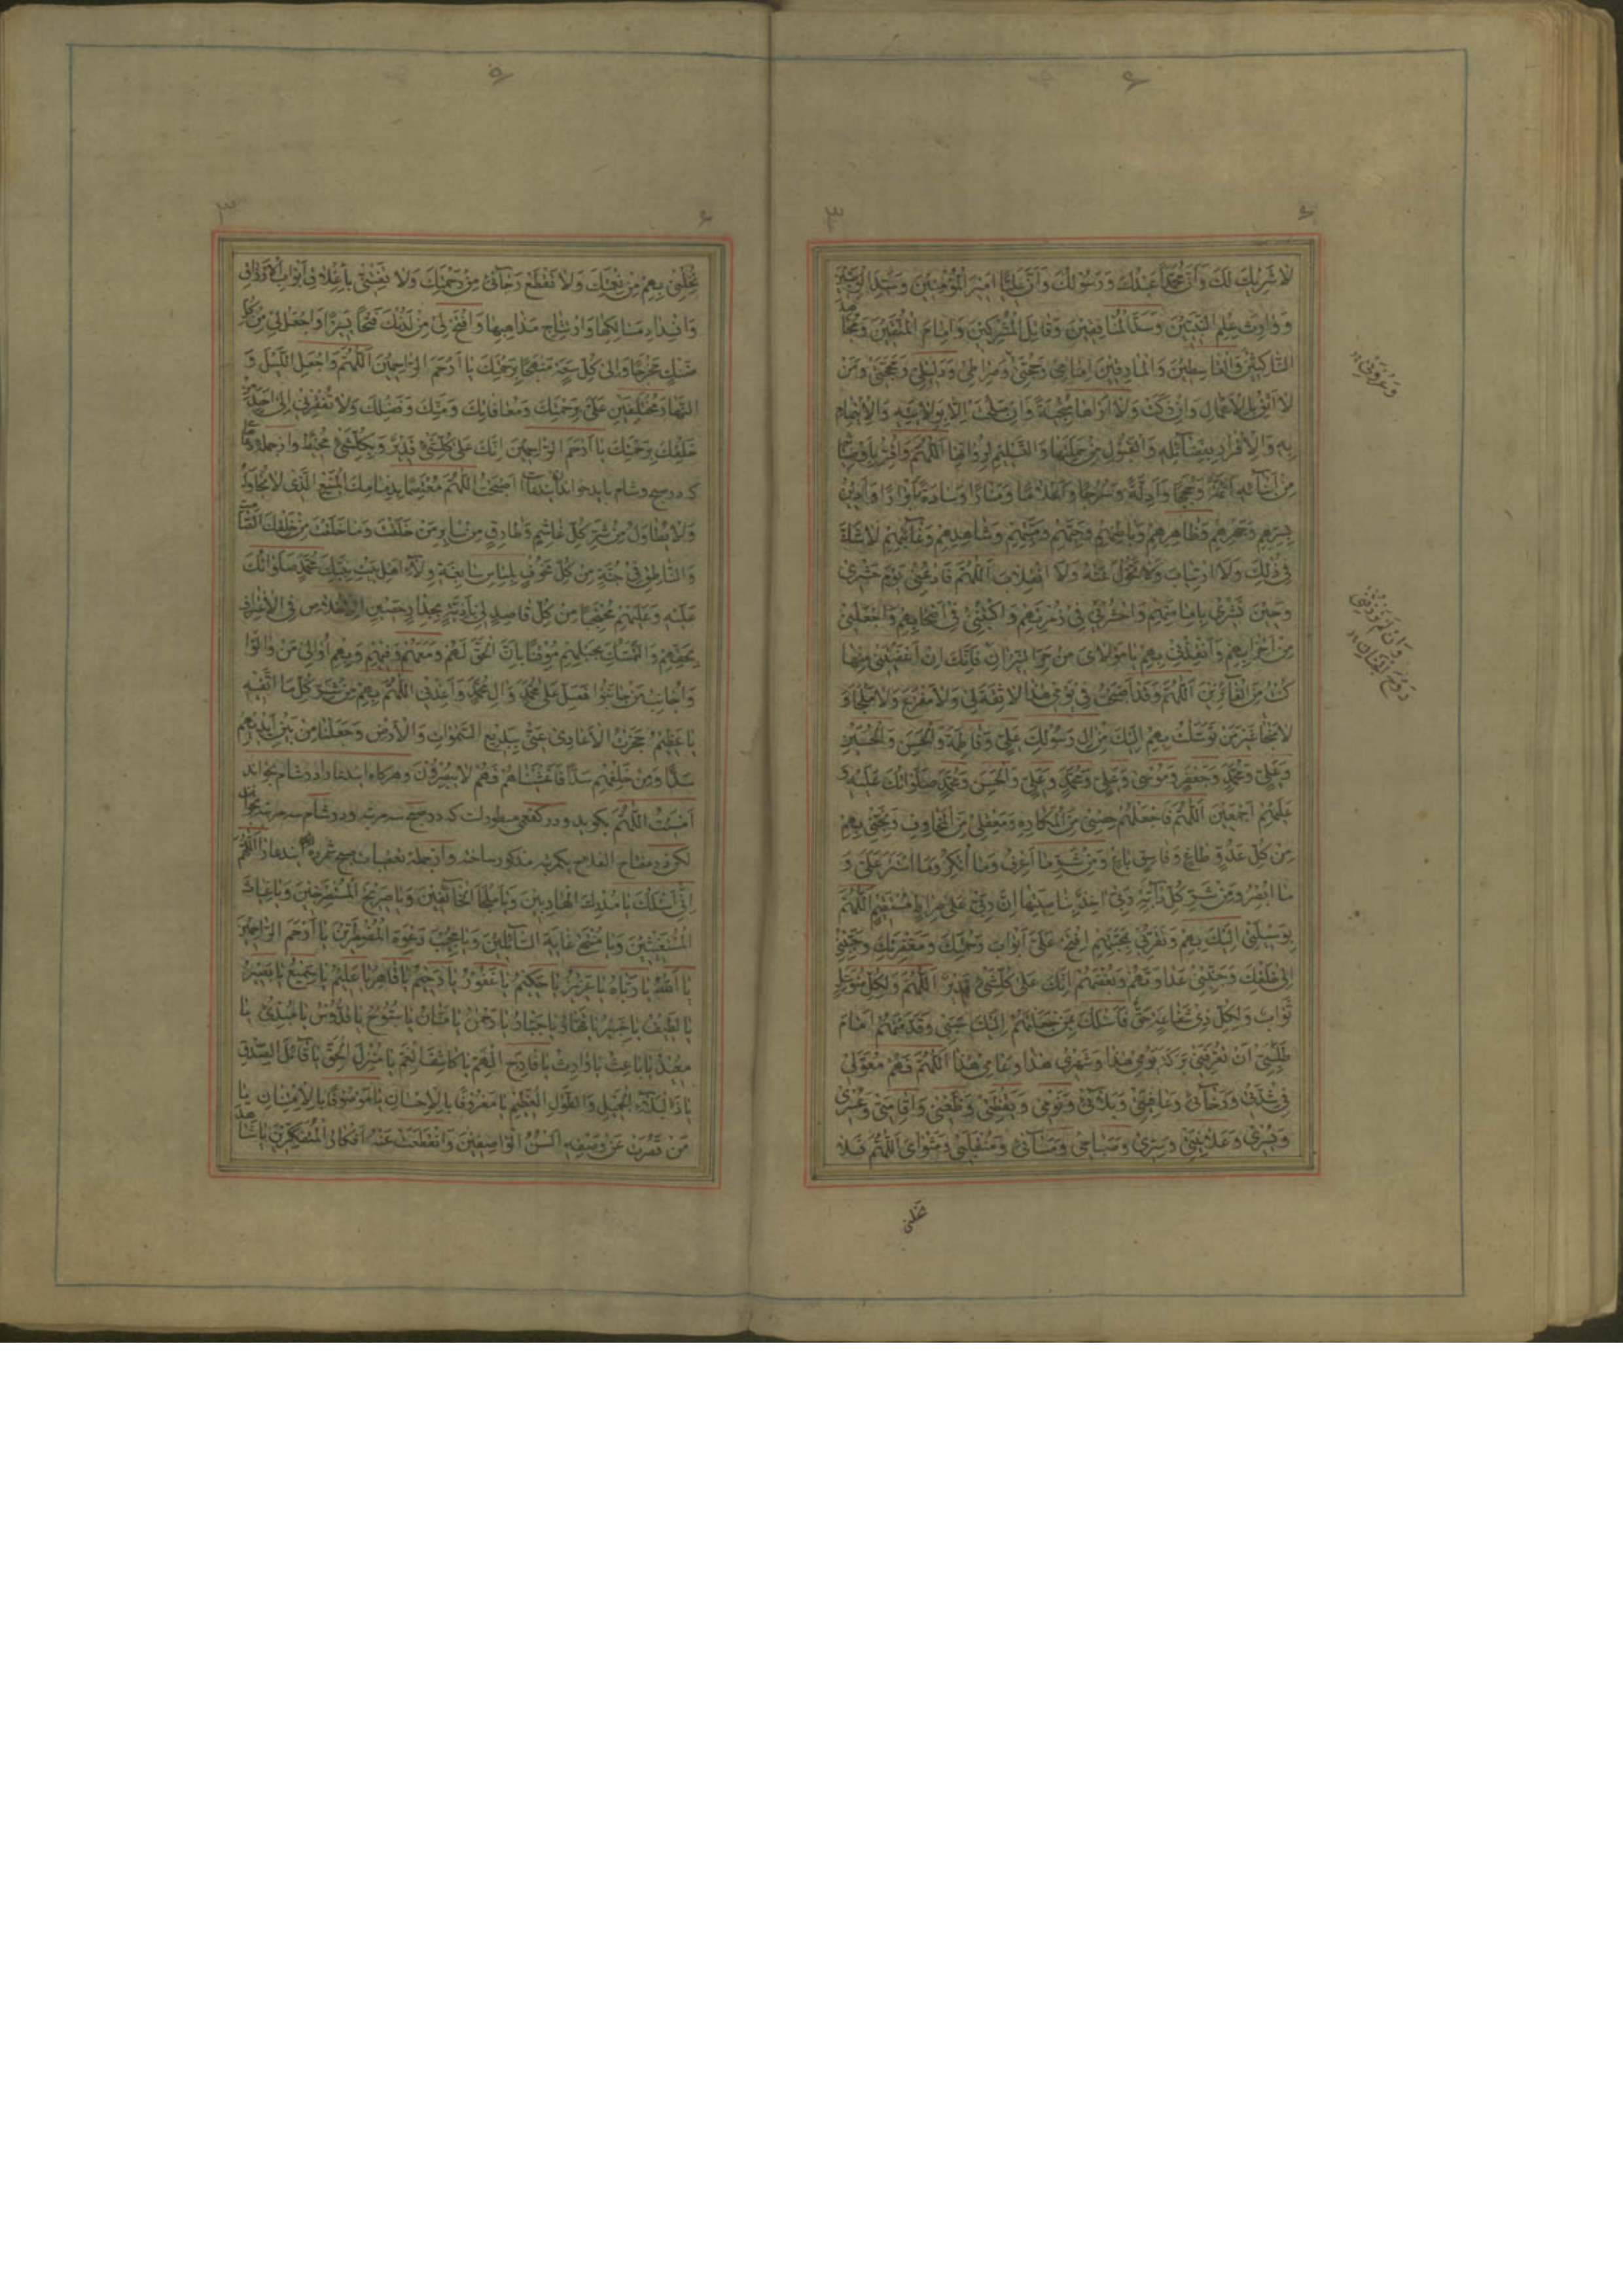 لا شَرِيكَ لَكَ وَاَنَّ مُحَمَّدًا عَبْدُكَ وَرَسُولُكَ وَاَنَّ عَلِيًّا اَمِيرَ الْمُؤْمِنِينَ وَسَيِّدَ الْوَصِيِّينَ
وَوارِثَ عِلْمِ النَّبِيِّينَ وَ الْمُنافِقِينَ وَقاتِلَ الْمُشْرِكِينَ وَاِمامَ الْمُتَّقِينَ وَمُجاهِدَ
النّاكِثِينَ وَالْقاسِطِينَ وَالْمارِقِينَ اِمامِي وَحُجَّتِي وَصِراطِي وَدَلِيلِي وَمَحَجَّتِي وَمَنْ
لا اَثِقُ بِالْاَعْمالِ وَاِنْ زَكَتْ وَلا اَراها مُنْجِيَةً وَاِنْ صَلُحَتْ اِلّا بِوِلايَتِهِ وَالْاِيتِمامِ
بِهِ وَالْاِقْرارِ بِفَضائِلِهِ وَالْقَبُولِ مِنْ حَمَلَتِها وَالتَّسْلِيمِ لِرُواتِها اَللّٰهُمَّ وَاُقِرُّ بِاَوْصِيائِهِ
مِنْ اَبْنائِهِ اَئِمَّةً وَحُجَجًا وَاَدِلَّةً وَسُرُجًا وَاَعْلامًا وَمَنارًا وَسادَةً وَاَبْرارًا وَاَدِينُ
بِسِرِّهِمْ وَجَهْرِهِمْ وَظاهِرِهِمْ وَباطِنِهِمْ وَحَيِّهِمْ وَمَيِّتِهِمْ وَشاهِدِهِمْ وَغائِبِهِمْ لا شَكَّ
فِي ذٰلِكَ وَلا ارْتِيابَ وَلا تَحَوُّلَ عَنْهُ وَلا انْقِلابَ اَللّٰهُمَّ فَادْعُنِي يَوْمَ حَشْرِي
وَحِينَ نَشْرِي بِاِمامَتِهِمْ وَاحْشُرْنِي فِي زُمْرَتِهِمْ وَاكْتُبْنِي فِي اَصْحابِهِمْ وَاجْعَلْنِي
مِنْ اِخْوانِهِمْ وَاَنْقِذْنِي بِهِمْ يا مَوْلايَ مِنْ حَرِّ النِّيرانِ فَاِنَّكَ اِنْ اَعْفَيْتَنِي مِنْها
كُنْتُ مِنَ الْفائِزِينَ اَللّٰهُمَّ وَقَدْ اَصْبَحْتُ فِي يَوْمِي هٰذا لا ثِقَةَ لِي وَلا مَفْزَعَ وَلا مَلْجَأَ وَ
لا مُلْتَجَأَ غَيْرَ مَنْ تَوَسَّلْتُ بِهِمْ اِلَيْكَ مِنْ آلِ رَسُولِكَ عَلِيٍّ وَفاطِمَةَ وَالْحَسَنِ وَالْحُسَيْنِ
وَعَلِيٍّ وَمُحَمَّدٍ وَجَعْفَرٍ وَمُوسى وَعَلِيٍّ وَمُحَمَّدٍ وَعَلِيٍّ وَالْحَسَنِ وَمُحَمَّدٍ صَلَواتُكَ عَلَيْهِ وَ
عَلَيْهِمْ اَجْمَعِينَ اَللّٰهُمَّ فَاجْعَلْهُمْ حِصْنِي مِنَ الْمَكارِهِ وَمَعْقِلِي مِنَ الْمَخاوِفِ وَنَجِّنِي بِهِمْ
مِنْ كُلِّ عَدُوٍّ طاغٍ وَفاسِقٍ باغٍ وَمِنْ شَرِّ ما اَعْرِفُ وَما اُنْكِرُ وَما اسْتَتَرَ عَلَيَّ وَ
ما اُبْصِرُ وَمِنْ شَرِّ كُلِّ دابَّةٍ رَبِّي آخِذٌ بِناصِيَتِها اِنَّ رَبِّي عَلى صِراطٍ مُسْتَقِيمٍ اَللّٰهُمَّ
بِوَسِيلَتِي اِلَيْكَ بِهِمْ وَتَقَرُّبِي بِمَحَبَّتِهِمْ اِفْتَحْ عَلَيَّ اَبْوابَ رَحْمَتِكَ وَمَغْفِرَتِكَ وَحَبِّبْنِي
اِلى خَلْقِكَ وَجَنِّبْنِي عَداوَتَهُمْ وَبُغْضَهُمْ اِنَّكَ عَلى كُلِّ شَيْءٍ قَدِيرٌ اَللّٰهُمَّ وَلِكُلِّ مُتَوَسِّلٍ
ثَوابٌ وَلِكُلِّ ذِي شَفاعَةٍ حَقٌّ فَاَسْئَلُكَ بِمَنْ جَعَلْتُهُمْ اِلَيْكَ سَبَبِي وَقَدَّمْتُهُمْ اَمامَ
طَلِبَتِي اَنْ تُعَرِّفَنِي بَرَكَةَ يَوْمِي هٰذا وَشَهْرِي هٰذا وَعامِي هٰذا اَللّٰهُمَّ فَهُمْ مُعَوَّلِي
فِي شِدَّتِي وَرَخائِي وَعافِيَتِي وَبَلائِي وَنَوْمِي وَيَقْظَتِي وَظَعْنِي وَاِقامَتِي وَعُسْرِي
وَيُسْرِي وَعَلانِيَتِي وَسِرِّي وَصَباحِي وَمَسائِي وَمُنْقَلَبِي وَمَثْوايَ اَللّٰهُمَّ فَلا
تُخَلِّنِي بِهِمْ مِنْ نِعْمَتِكَ وَلا تَقْطَعْ رَجائِي مِنْ رَحْمَتِكَ وَلا تَفْتِنِّي بِاِغْلاقِ اَبْوابِ الْاَرْزاقِ
وَانْسِدادِ مَسالِكِها وَارْتِتاجِ مَذاهِبِها وَافْتَحْ لِي مِنْ لَدُنْكَ فَتْحًا يَسِيرًا وَاجْعَلْ لِي مِنْ كُلِّ
ضَنْكٍ مَخْرَجًا وَاِلى كُلِّ سَعَةٍ مَنْهَجًا بِرَحْمَتِكَ يا اَرْحَمَ الرّاحِمِينَ اَللّٰهُمَّ وَاجْعَلِ اللَّيْلَ وَ
النَّهارَ مُخْتَلِفَيْنِ عَلَيَّ بِرَحْمَتِكَ وَمُعافاتِكَ وَمَنِّكَ وَفَضْلِكَ وَلا تُفْقِرْنِي اِلى اَحَدٍ مِنْ
خَلْقِكَ بِرَحْمَتِكَ يا اَرْحَمَ الرّاحِمِينَ اِنَّكَ عَلى كُلِّ شَيْءٍ قَدِيرٌ وَبِكُلِّ شَيْءٍ مُحِيطٌ واز جمله دعائی
که در صبح وشام باید خواند ایندعا اَصْبَحْتُ اَللّٰهُمَّ مُعْتَصِمًا بِذِمامِكَ الْمَنِيعِ الَّذِي لا يُحاوَلُ
وَلا يُطاوَلُ مِنْ شَرِّ كُلِّ غاشِمٍ وَطارِقٍ مِنْ سائِرِ مَنْ خَلَقْتَ وَما خَلَقْتَ مِنْ خَلْقِكَ الصّامِتِ
وَالنّاطِقِ فِي جُنَّةٍ مِنْ كُلِّ مَخُوفٍ بِلِباسٍ سابِغَةٍ وِلاءِ اَهْلِ بَيْتِ نَبِيِّكَ مُحَمَّدٍ صَلَواتُكَ
عَلَيْهِ وَعَلَيْهِمْ مُحْتَجِبًا مِنْ كُلِّ قاصِدٍ لِي بِاَذِيَّةٍ بِجِدارٍ حَصِينٍ الْاِخْلاصِ فِي الْاِعْتِرافِ
بِحَقِّهِمْ وَالتَّمَسُّكِ بِحَبْلِهِمْ مُوقِنًا بِاَنَّ الْحَقَّ لَهُمْ وَمَعَهُمْ وَفِيهِمْ وَبِهِمْ اُوالِي مَنْ والَوْا
وَاُجانِبُ مَنْ جانَبُوا فَصَلِّ عَلى مُحَمَّدٍ وَآلِ مُحَمَّدٍ وَاَعِذْنِي اَللّٰهُمَّ بِهِمْ مِنْ شَرِّ كُلِّ ما اَتَّقِيهِ
يا عَظِيمُ حَجَزْتُ الْاَعادِيَ عَنِّي بِبَدِيعِ السَّمٰواتِ وَالْاَرْضِ وَجَعَلْنا مِنْ بَيْنِ اَيْدِيهِمْ
سَدًّا وَمِنْ خَلْفِهِمْ سَدًّا فَاَغْشَيْناهُمْ فَهُمْ لا يُبْصِرُونَ وهرکاه ایندعا را در شام بخواند
اَمْسَيْتُ اَللّٰهُمَّ بکوید ودر کفعمی مسطورست که در صبح سه مرتبه ودر شام سه مرتبه بخواند
لکن در مفتاح الفلاح یکمرتبه مذکور ساخته واز جمله تعقیبات صبح ایندعا اَللّٰهُمَّ
اِنِّي اَسْئَلُكَ يا مُدْرِكَ الْهارِبِينَ وَيا مَلْجَأَ الْخائِفِينَ وَيا صَرِيخَ الْمُسْتَصْرِخِينَ وَيا غِياثَ
الْمُسْتَغِيثِينَ وَيا مُنْتَهى غايَةِ السّائِلِينَ وَيا مُجِيبَ دَعْوَةِ الْمُضْطَرِّينَ يا اَرْحَمَ الرّاحِمِينَ
يا اَللهُ يا رَبّاهُ يا عَزِيزُ يا حَكِيمُ يا غَفُورُ يا رَحِيمُ يا قاهِرُ يا عَلِيمُ يا سَمِيعُ يا بَصِيرُ
يا لَطِيفُ يا خَبِيرُ يا قَهّارُ يا جَبّارُ يا رَحْمٰنُ يا مَنّانُ يا سُبُّوحُ يا قُدُّوسُ يا مُبْدِئُ يا
مُعِيدُ يا باعِثُ يا وارِثُ يا فارِجَ الْهَمِّ يا كاشِفَ الْغَمِّ يا مُنْزِلَ الْحَقِّ يا قائِلَ الصِّدْقِ
يا ذَا الْبَلاءِ الْجَمِيلِ وَالطَّوْلِ الْعَظِيمِ يا مَعْرُوفًا بِالْاِحْسانِ يا مَوْصُوفًا بِالْاِمْتِنانِ يا
مَنْ قَصُرَتْ عَنْ وَصْفِهِ اَلْسُنُ الْواصِفِينَ وَانْقَطَعَتْ عَنْهُ اَفْكارُ الْمُتَفَكِّرِينَ يا شاهِدَ